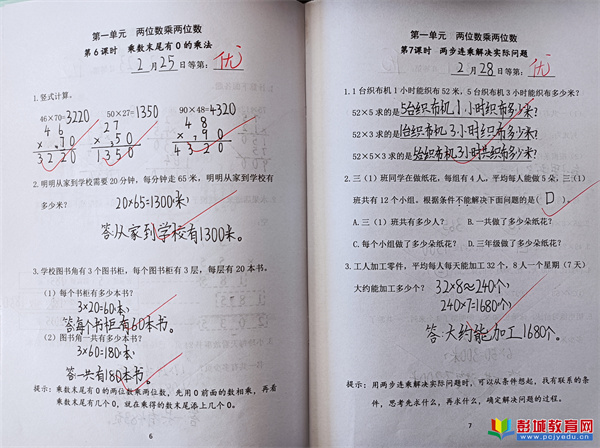 第一单元 两位数乘两位数
第6课时 乘数末尾有0的乘法
2月25日等第：优
1.竖式计算。
46×70=3220 50×27=1350 90×48=4320
46 27 48
×70 ×50 ×90
3220 1350 4320
2.明明从家到学校需要20分钟，每分钟走65米，明明从家到学校有
多少米？
20×65=1300(米)
答:从家到学校有1300米。
3.学校图书角有3个图书柜，每个图书柜有3层，每层有20本书。
（1）每个书柜有多少本书？
3×20=60(本)
答:每个书柜有60本书。
（2）图书角一共有多少本书？
3×60=180(本)
答:一共有180本书。
提示：乘数末尾有0的两位数乘两位数，先用0前面的数相乘，再看
乘数末尾有几个0，就在乘得的数末尾添上几个0。
6
第一单元 两位数乘两位数
第7课时 两步连乘解决实际问题
2月28日等第：优
1.1台织布机1小时能织布52米，5台织布机3小时能织布多少米？
52×5求的是5台织布机1小时织布多少米？
52×3求的是1台织布机3小时织布多少米？
52×5×3求的是5台织布机3小时共织布多少米？
2.三（1）班同学在做纸花，每组有4人，平均每人能做5朵，三（1）
班共有12个小组。根据条件不能解决下面问题的是（D）。
A.三（1）班共有多少人？ B.一共做了多少朵纸花？
C.每个小组做了多少朵纸花？ D.三年级做了多少朵纸花？
3.工人加工零件，平均每人每天能加工32个，8人一个星期（7天）
大约能加工多少个？
32×8≈240(个)
240×7=1680(个)
答:大约能加工1680个。
提示：用两步连乘解决实际问题时，可以从条件想起，找有联系的条
件，思考先求什么，再求什么，确定解决问题的过程。
7
彭城教育网
www.pcjyedu.cn